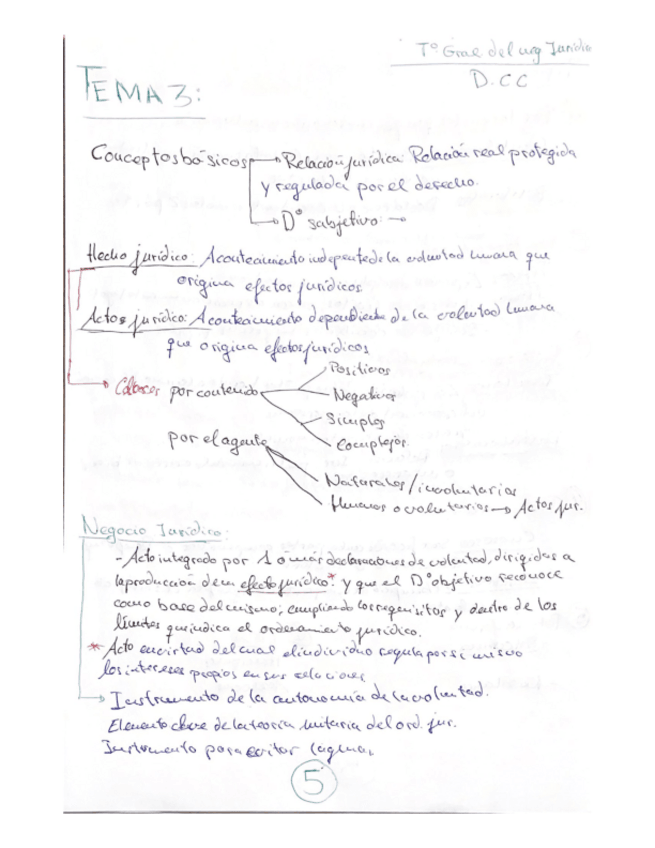 Tº Gral del neg Jurídico
D. C C
TEMA 3:
Conceptos básicos → Relación jurídica: Relación real protegida
y regulada por el derecho.
→ Dº subjetivo: →
Hecho jurídico: Acontecimiento indepte de la voluntad humana que
origina efectos jurídicos
Actos jurídico: Acontecimiento dependiente de la voluntad humana
que origina efectos jurídicos
por contenido
Positivos
Negativos
Simples
Complejos.
por el agente
Naturales/involuntarios
Humanos o voluntarios → Actos jur.
Negocio Jurídico:
- Acto integrado por 1 o más declaraciones de voluntad, dirigidas a
la producción de un efecto jurídico* y que el Dº objetivo reconoce
como base del mismo, cumpliendo los requisitos y dentro de los
límites que indica el ordenamiento jurídico.
* Acto en virtud del cual el individuo regula por sí mismo
los intereses propios en sus relaciones.
→ Instrumento de la autonomía de la voluntad.
Elemento clave de la teoría unitaria del ord. jur.
Instrumento para evitar lagunas
5